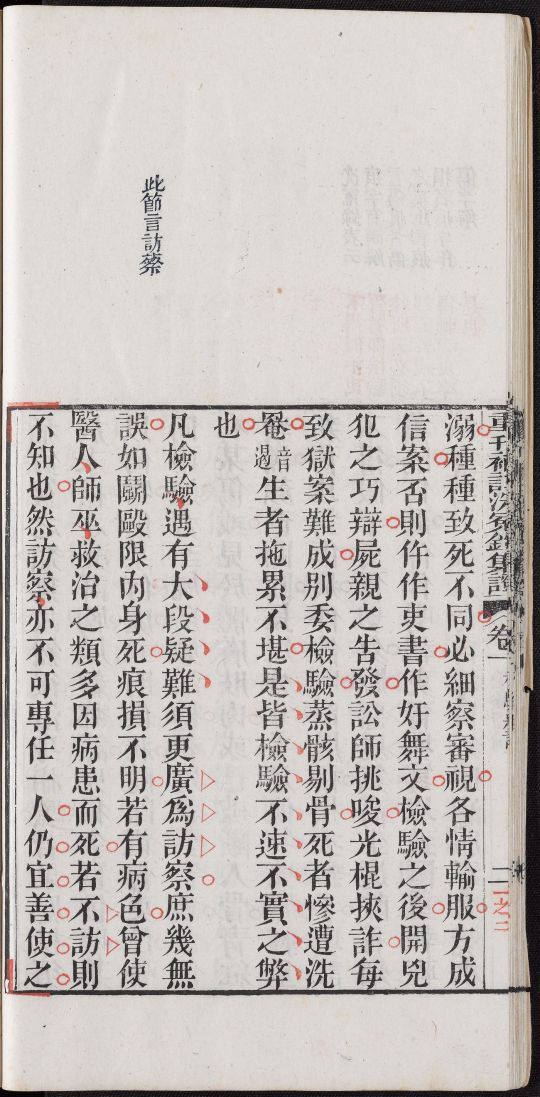 重刊補註洗冤錄集證 卷一
二之二
溺種種致死不同必細察審視各情輸服方成
信案否則仵作吏書作奸舞文檢驗之後開兇
犯之巧辯屍親之告發訟師挑唆光棍挾詐每
致獄案難成別委檢驗蒸骸剔骨死者慘遭洗
罨音遏生者拖累不堪是皆檢驗不速不實之弊
也
凡檢驗遇有大段疑難須更廣為訪察庶幾無
誤如鬬毆限內身死痕損不明若有病色曾使
醫人師巫救治之類多因病患而死若不訪則
不知也然訪察亦不可專任一人仍宜善使之
此節言訪察